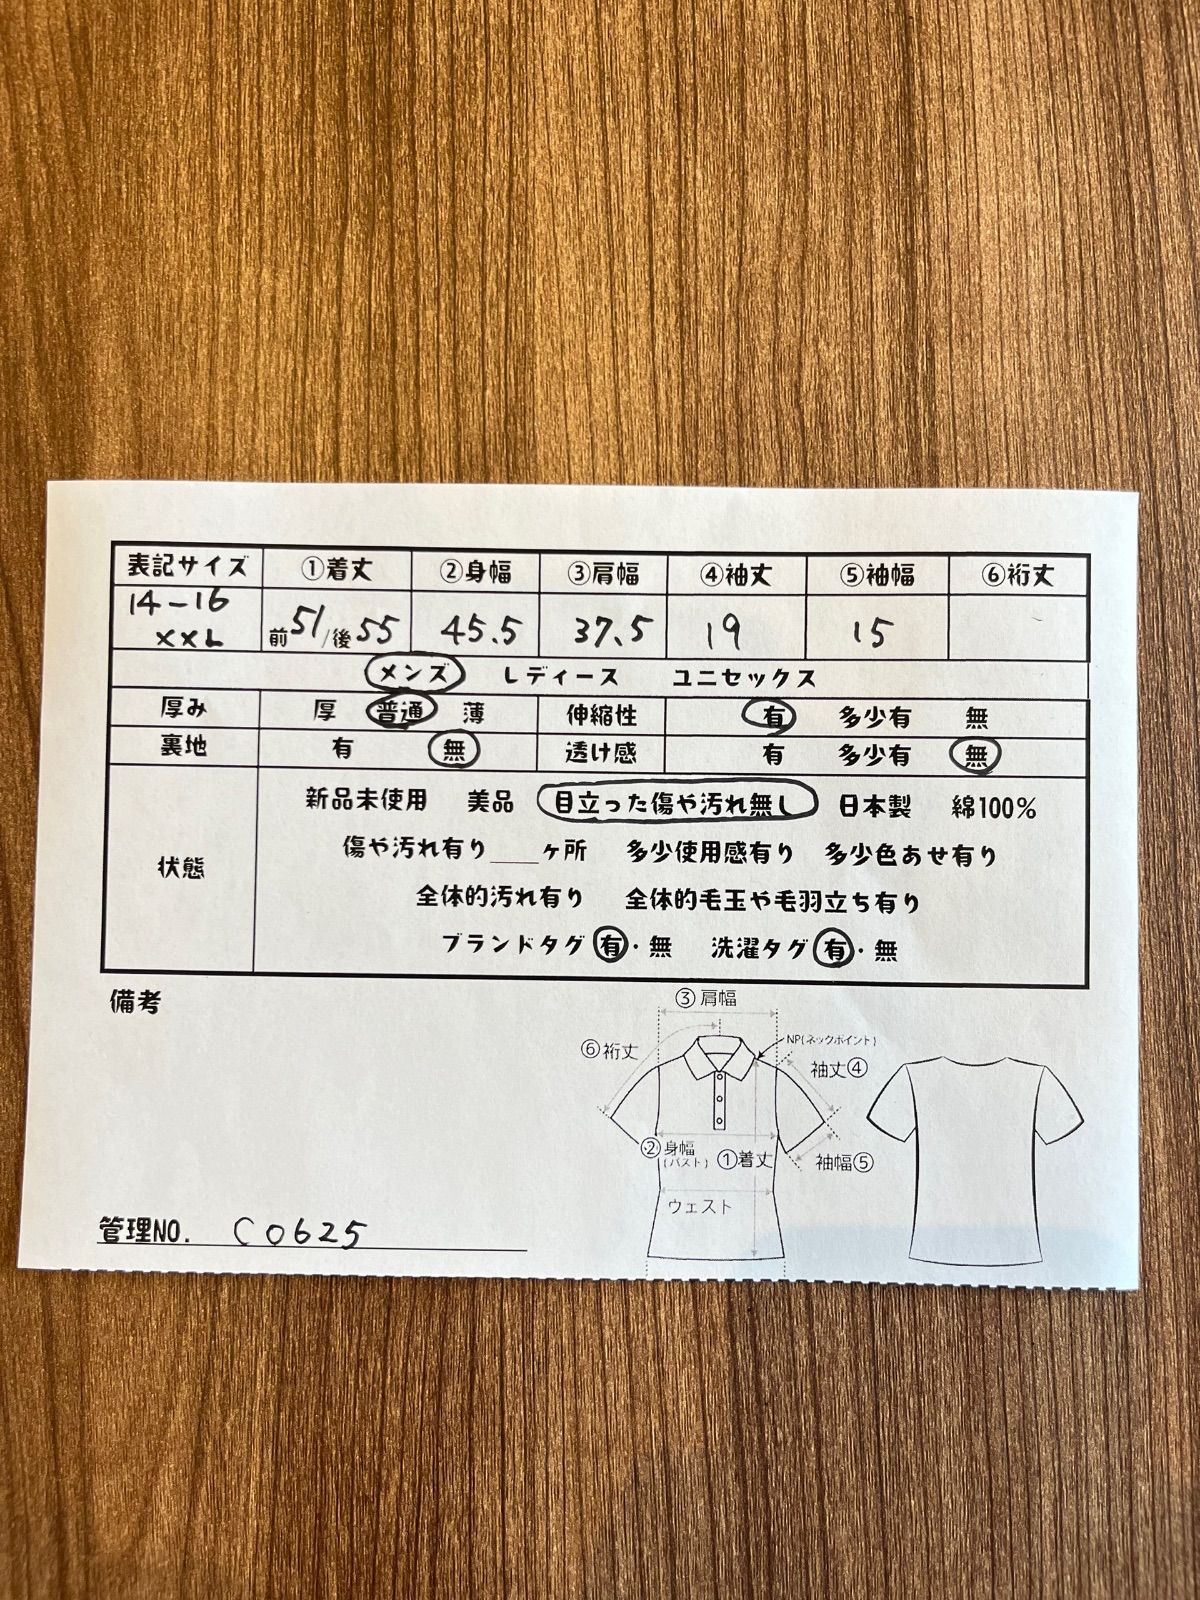 表記サイズ ①着丈 ②身幅 ③肩幅 ④袖丈 ⑤袖幅 ⑥裄丈
14-16
XXL 前51/後55 45.5 37.5 19 15
メンズ レディース ユニセックス
厚み 厚 普通 薄 伸縮性 有 多少有 無
裏地 有 無 透け感 有 多少有 無
状態
新品未使用 美品 目立った傷や汚れ無し 日本製 綿100%
傷や汚れ有り___ヶ所 多少使用感有り 多少色あせ有り
全体的汚れ有り 全体的毛玉や毛羽立ち有り
ブランドタグ 有・無 洗濯タグ 有・無
備考
③肩幅
⑥裄丈
NP(ネックポイント)
袖丈④
②身幅
(バスト)
①着丈
袖幅⑤
ウェスト
管理NO. C0625